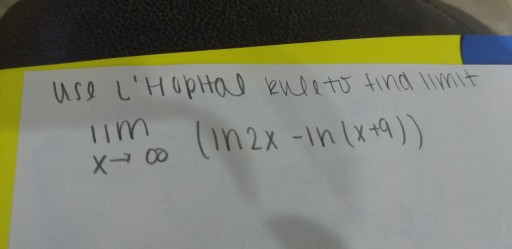 use L'HopHal Rule to find limit
lim
x→∞ (ln2x -ln(x+9))